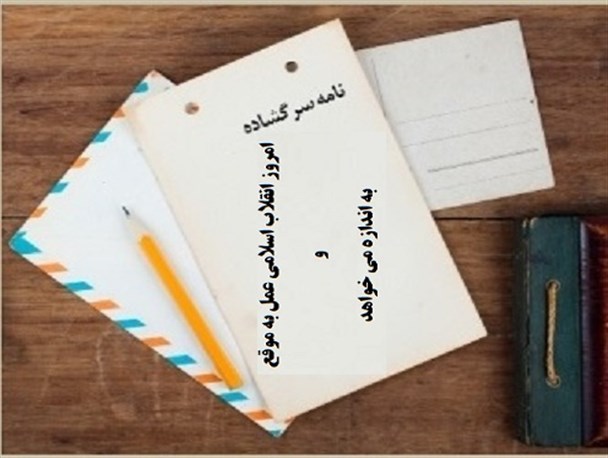 نامه سر گشاده
امروز انقلاب اسلامی عمل به موقع
و
به اندازه می خواهد